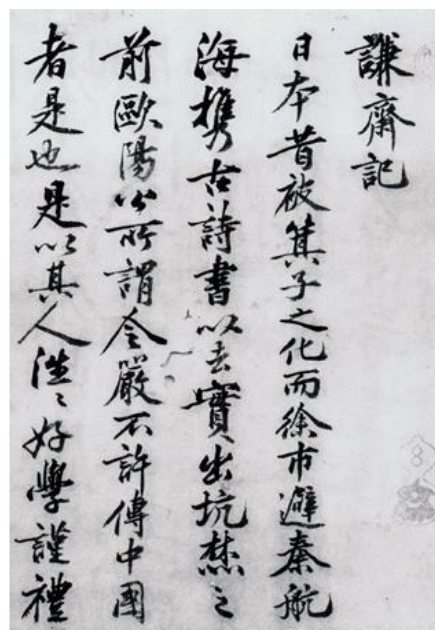 謙齋記
日本昔被箕子之化而徐市避秦航
海攜古詩書以去實出坑焚之
前歐陽公所謂令嚴不許傳中國
者是也是以其人徃〻好學謹禮